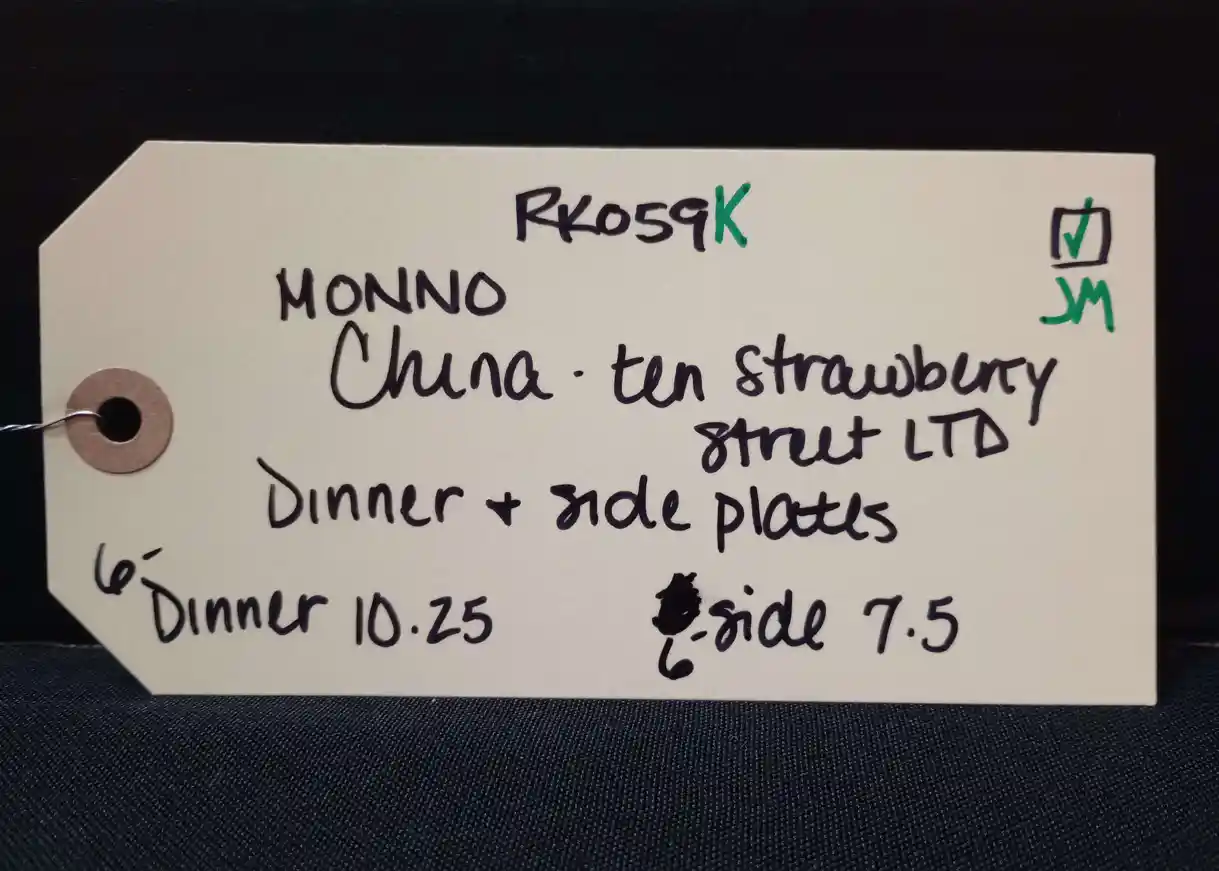 RK059K
☑
JM
MONNO
China · ten strawberry
street LTD
Dinner + side plates
6- Dinner 10.25
6- side 7.5